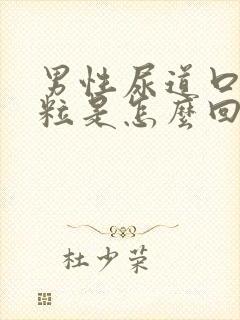 男性尿道口
粒是怎麼回
杜少荣